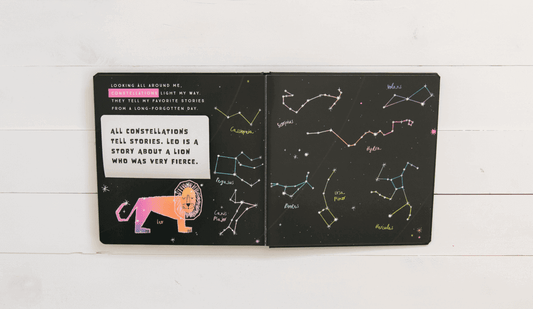 LOOKING ALL AROUND ME,
CONSTELLATIONS LIGHT MY WAY.
THEY TELL MY FAVORITE STORIES
FROM A LONG-FORGOTTEN DAY.
ALL CONSTELLATIONS
TELL STORIES. LEO IS A
STORY ABOUT A LION
WHO WAS VERY FIERCE.
Leo
Cassiopeia
Pegasus
Canis
Major
Scorpius
Hydra
Ursa
Minor
Hercules